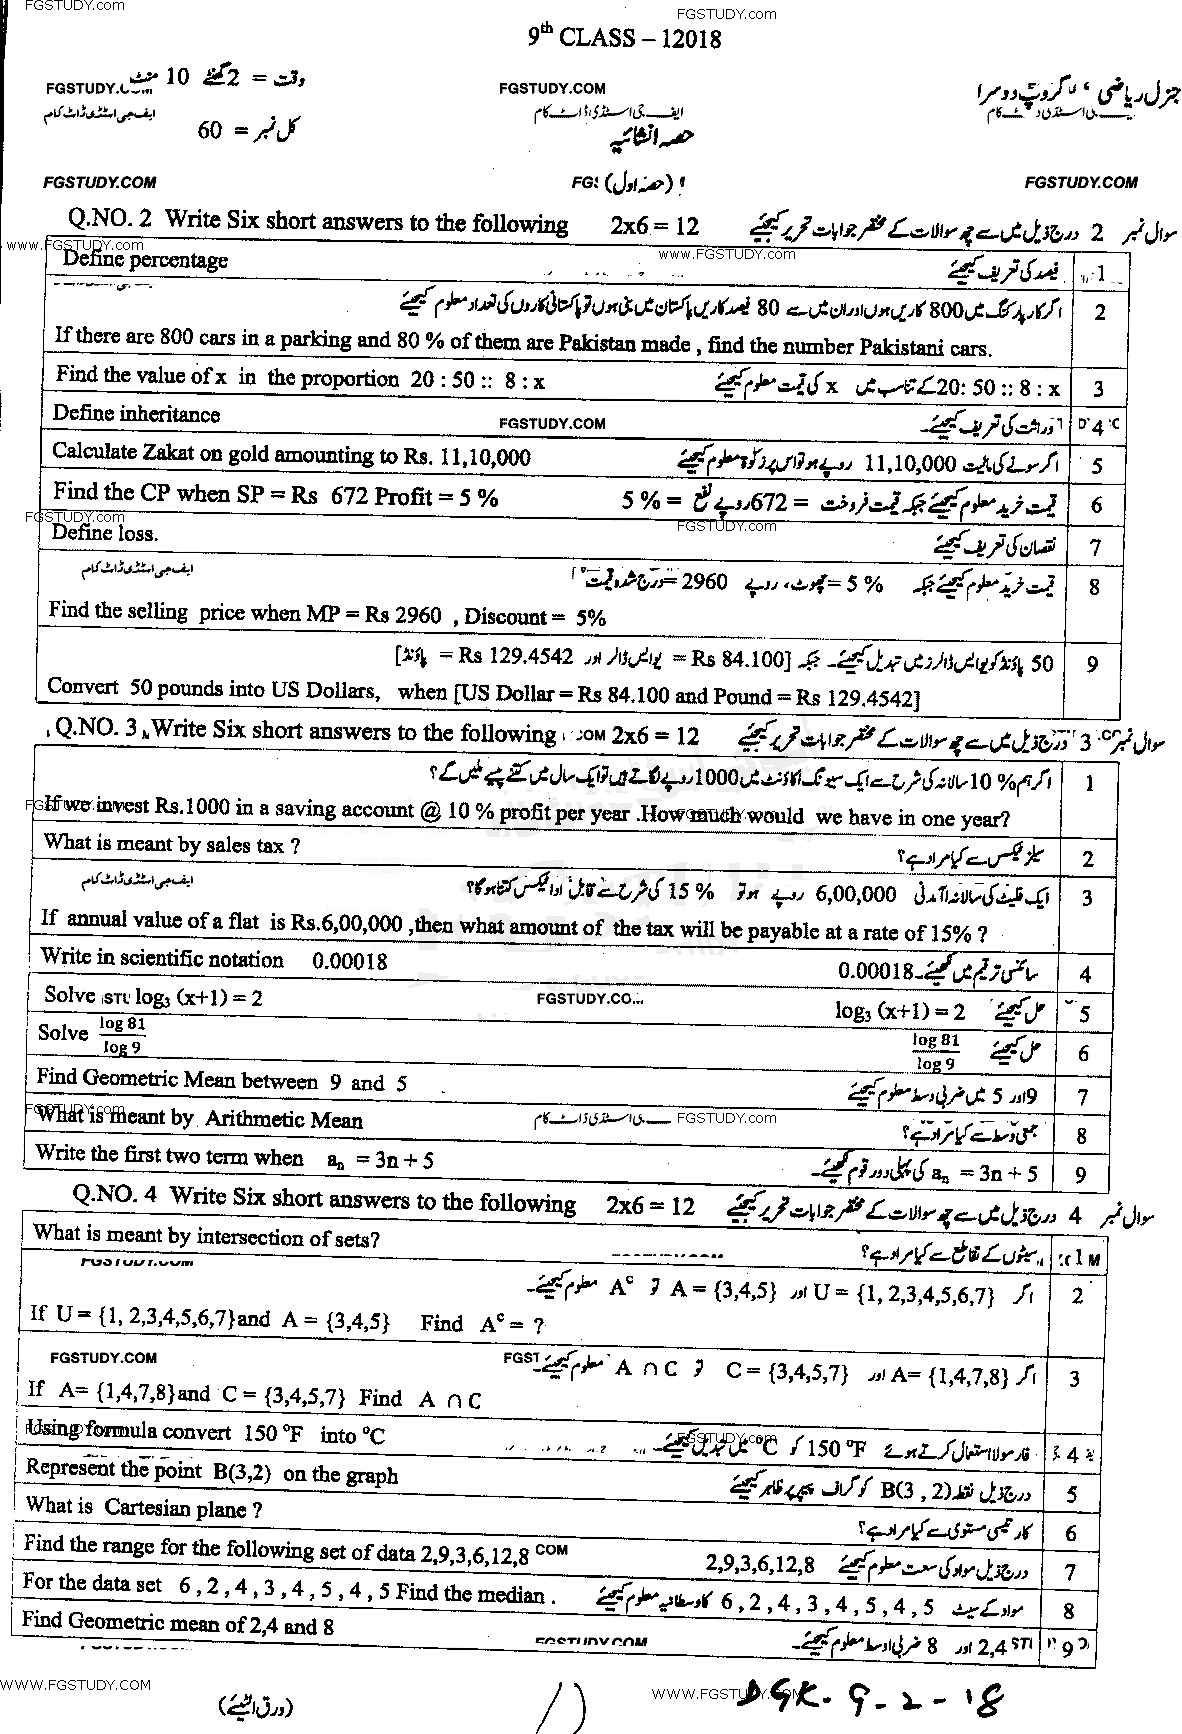 FGSTUDY.COM
FGSTUDY.com
9th CLASS – 12018
وقت = 2 گھنٹے 10 منٹ
FGSTUDY.COM
جنرل ریاضی، گروپ دوسرا
ایف جی اسٹڈی ڈاٹ کام
کل نمبر = 60
حصہ انشائیہ
FGSTUDY.COM
(حصہ اول)
FGSTUDY.COM
Q.NO. 2 Write Six short answers to the following 2x6 = 12 سوال نمبر 2 درج ذیل میں سے چھ سوالات کے مختصر جوابات تحریر کیجئے
www.FGSTUDY.com
www.FGSTUDY.com
Define percentage فیصد کی تعریف کیجئے 1
اگر کار پارکنگ میں 800 کاریں ہوں اور ان میں سے 80 فیصد کاریں پاکستان میں بنی ہوں تو پاکستانی کاروں کی تعداد معلوم کیجئے 2
If there are 800 cars in a parking and 80 % of them are Pakistan made , find the number Pakistani cars.
Find the value of x in the proportion 20 : 50 :: 8 : x 20: 50 :: 8 : x کے تناسب میں x کی قیمت معلوم کیجئے 3
Define inheritance FGSTUDY.COM وراثت کی تعریف کیجئے۔ 4
Calculate Zakat on gold amounting to Rs. 11,10,000 اگر سونے کی مالیت 11,10,000 روپے ہو تو اس پر زکوٰۃ معلوم کیجئے 5
Find the CP when SP = Rs 672 Profit = 5 % قیمت خرید معلوم کیجئے جبکہ قیمت فروخت = 672 روپے نفع = 5 % 6
FGSTUDY.com
FGSTUDY.com
Define loss. نقصان کی تعریف کیجئے 7
ایف جی اسٹڈی ڈاٹ کام
قیمت خرید معلوم کیجئے جبکہ 5 % = چھوٹ، روپے 2960 = درج شدہ قیمت 8
Find the selling price when MP = Rs 2960 , Discount = 5%
50 پاؤنڈ کو یو ایس ڈالرز میں تبدیل کیجئے۔ جبکہ [Rs 84.100 = یو ایس ڈالر اور Rs 129.4542 = پاؤنڈ] 9
Convert 50 pounds into US Dollars, when [US Dollar = Rs 84.100 and Pound = Rs 129.4542]
Q.NO. 3 Write Six short answers to the following 2x6 = 12 سوال نمبر 3 درج ذیل میں سے چھ سوالات کے مختصر جوابات تحریر کیجئے
اگر ہم 10 % سالانہ کی شرح سے ایک سیونگ اکاؤنٹ میں 1000 روپے لگاتے ہیں تو ایک سال میں کتنے پیسے ملیں گے؟ 1
If we invest Rs.1000 in a saving account @ 10 % profit per year .How much would we have in one year?
What is meant by sales tax ? سیلز ٹیکس سے کیا مراد ہے؟ 2
ایف جی اسٹڈی ڈاٹ کام
ایک فلیٹ کی سالانہ آمدنی 6,00,000 روپے ہو تو 15 % کی شرح سے قابل ادا ٹیکس کتنا ہو گا؟ 3
If annual value of a flat is Rs.6,00,000 ,then what amount of the tax will be payable at a rate of 15% ?
Write in scientific notation 0.00018 سائنسی ترقیم میں لکھیئے۔ 0.00018 4
Solve log₃ (x+1) = 2 FGSTUDY.CO log₃ (x+1) = 2 حل کیجئے 5
Solve log 81 / log 9 log 81 / log 9 حل کیجئے 6
Find Geometric Mean between 9 and 5 9 اور 5 میں ضربی وسط معلوم کیجئے 7
What is meant by Arithmetic Mean FGSTUDY.com جمعی وسط سے کیا مراد ہے؟ 8
Write the first two term when aₙ = 3n + 5 aₙ = 3n + 5 کی پہلی دو رقوم لکھیئے۔ 9
Q.NO. 4 Write Six short answers to the following 2x6 = 12 سوال نمبر 4 درج ذیل میں سے چھ سوالات کے مختصر جوابات تحریر کیجئے
What is meant by intersection of sets? سیٹوں کے تقاطع سے کیا مراد ہے؟ 1
FGSTUDY.COM
اگر U = {1, 2,3,4,5,6,7} اور A = {3,4,5} تو Aᶜ معلوم کیجئے۔ 2
If U = {1, 2,3,4,5,6,7}and A = {3,4,5} Find Aᶜ = ?
FGSTUDY.COM
اگر A= {1,4,7,8} اور C = {3,4,5,7} تو A ∩ C معلوم کیجئے۔ 3
If A= {1,4,7,8}and C = {3,4,5,7} Find A ∩ C
Using formula convert 150 ⁰F into ⁰C فارمولا استعمال کرتے ہوئے 150 ⁰F کو ⁰C میں تبدیل کیجئے۔ 4
Represent the point B(3,2) on the graph درج ذیل نقطہ B(3 , 2) کو گراف پیپر پر ظاہر کیجئے 5
What is Cartesian plane ? کارتیسی مستوی سے کیا مراد ہے؟ 6
Find the range for the following set of data 2,9,3,6,12,8 درج ذیل مواد کی سعت معلوم کیجئے 2,9,3,6,12,8 7
For the data set 6 , 2 , 4 , 3 , 4 , 5 , 4 , 5 Find the median . مواد کے سیٹ 6 , 2 , 4 , 3 , 4 , 5 , 4 , 5 کا وسطانیہ معلوم کیجئے 8
Find Geometric mean of 2,4 and 8 FGSTUDY.COM 2,4 اور 8 ضربی اوسط معلوم کیجئے۔ 9
WWW.FGSTUDY.COM
WWW.FGSTUDY.COM
(ورق الٹیئے)
DGK-9-2-18